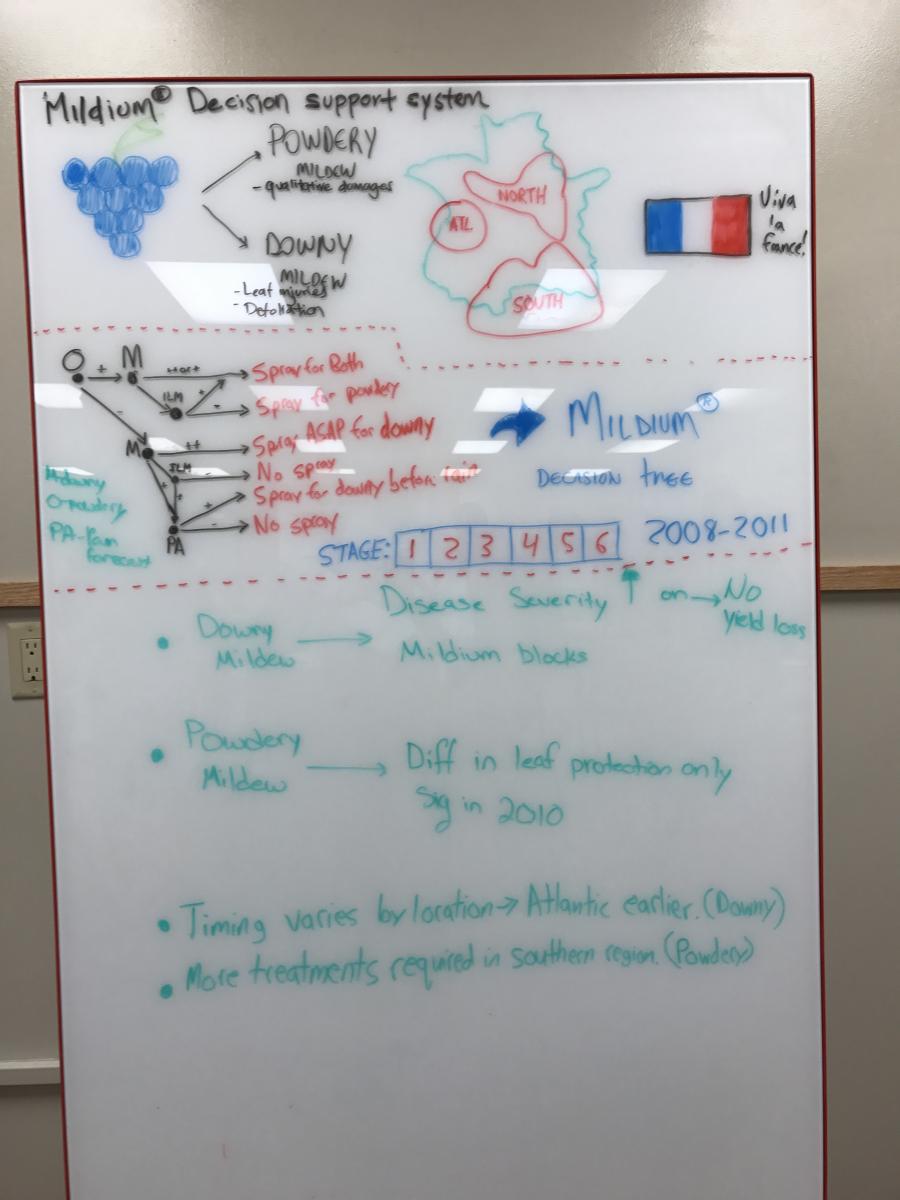 Mildium® Decision support system
POWDERY
MILDEW
- qualitative damages
DOWNY
MILDEW
- Leaf injuries
- Defoliation
NORTH
ATL
SOUTH
Viva
la
france!
O + M
Spray for Both
ILM + -
Spray for powdery
-
M ++ Spray ASAP for downy
ILM - No spray
+ + + Spray for downy before rain
PA - No spray
M-downy
O-powdery
PA-Rain
forecast
MILDIUM®
DECISION tree
STAGE: 1 2 3 4 5 6
2008-2011
• Downy
Mildew
Disease Severity ↑ on → No
yield loss
Mildium blocks
• Powdery
Mildew → Diff in leaf protection only
Sig in 2010
• Timing varies by location → Atlantic earlier. (Downy)
• More treatments required in southern region. (Powdery)